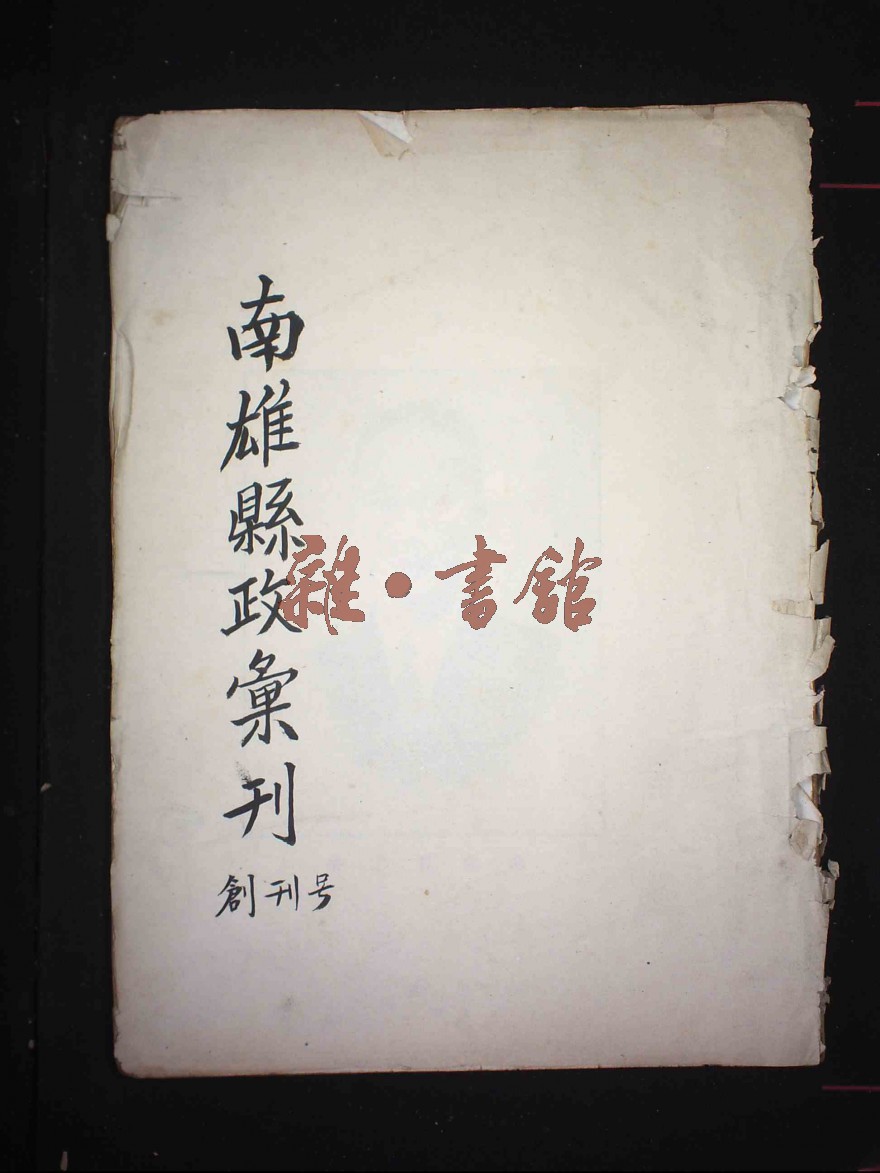 南雄縣政彙刊
創刊号
雜·書館